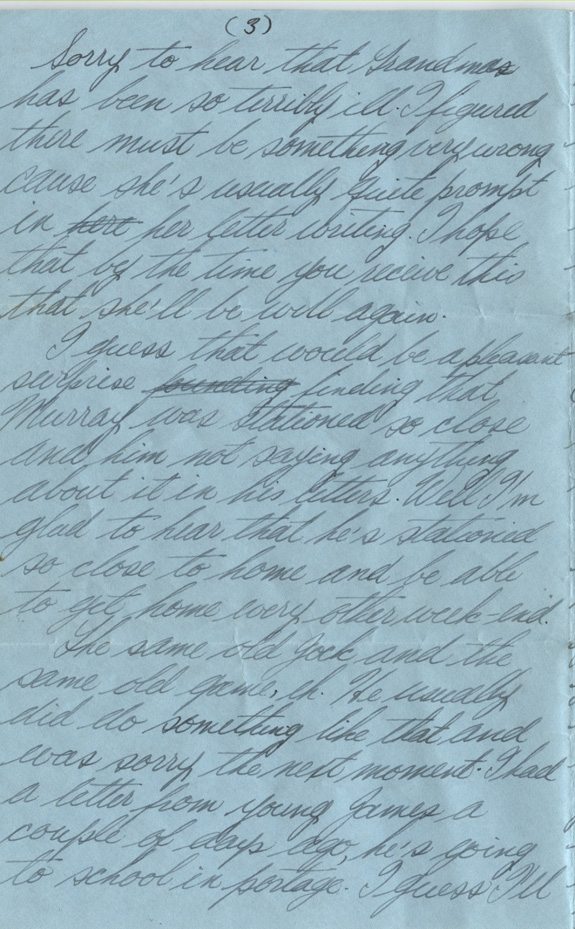 (3)
Sorry to hear that Grandmas
has been so terribly ill. I figured
there must be something very wrong
cause she's usually quite prompt
in here her letter writing. I hope
that by the time you recieve this
that she'll be will again.
I guess that would be a pleasant
surprise founding finding that
Murray was stationed so close
and him not saying anything
about it in his letters. Well I'm
glad to hear that he's stationed
so close to home and be able
to get home every other week-end.
The same old Jock and the
same old game, eh. He usually
did do something like that and
was sorry the next moment. I had
a letter from young James a
couple of days ago, he's going
to school in portage. I guess I'll